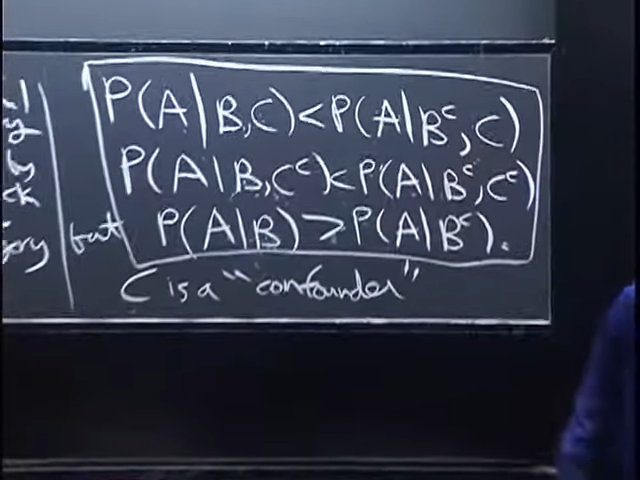 P(A|B,C)<P(A|Bᶜ,C)
P(A|B,Cᶜ)<P(A|Bᶜ,Cᶜ)
but P(A|B)>P(A|Bᶜ).
C is a "confounder"